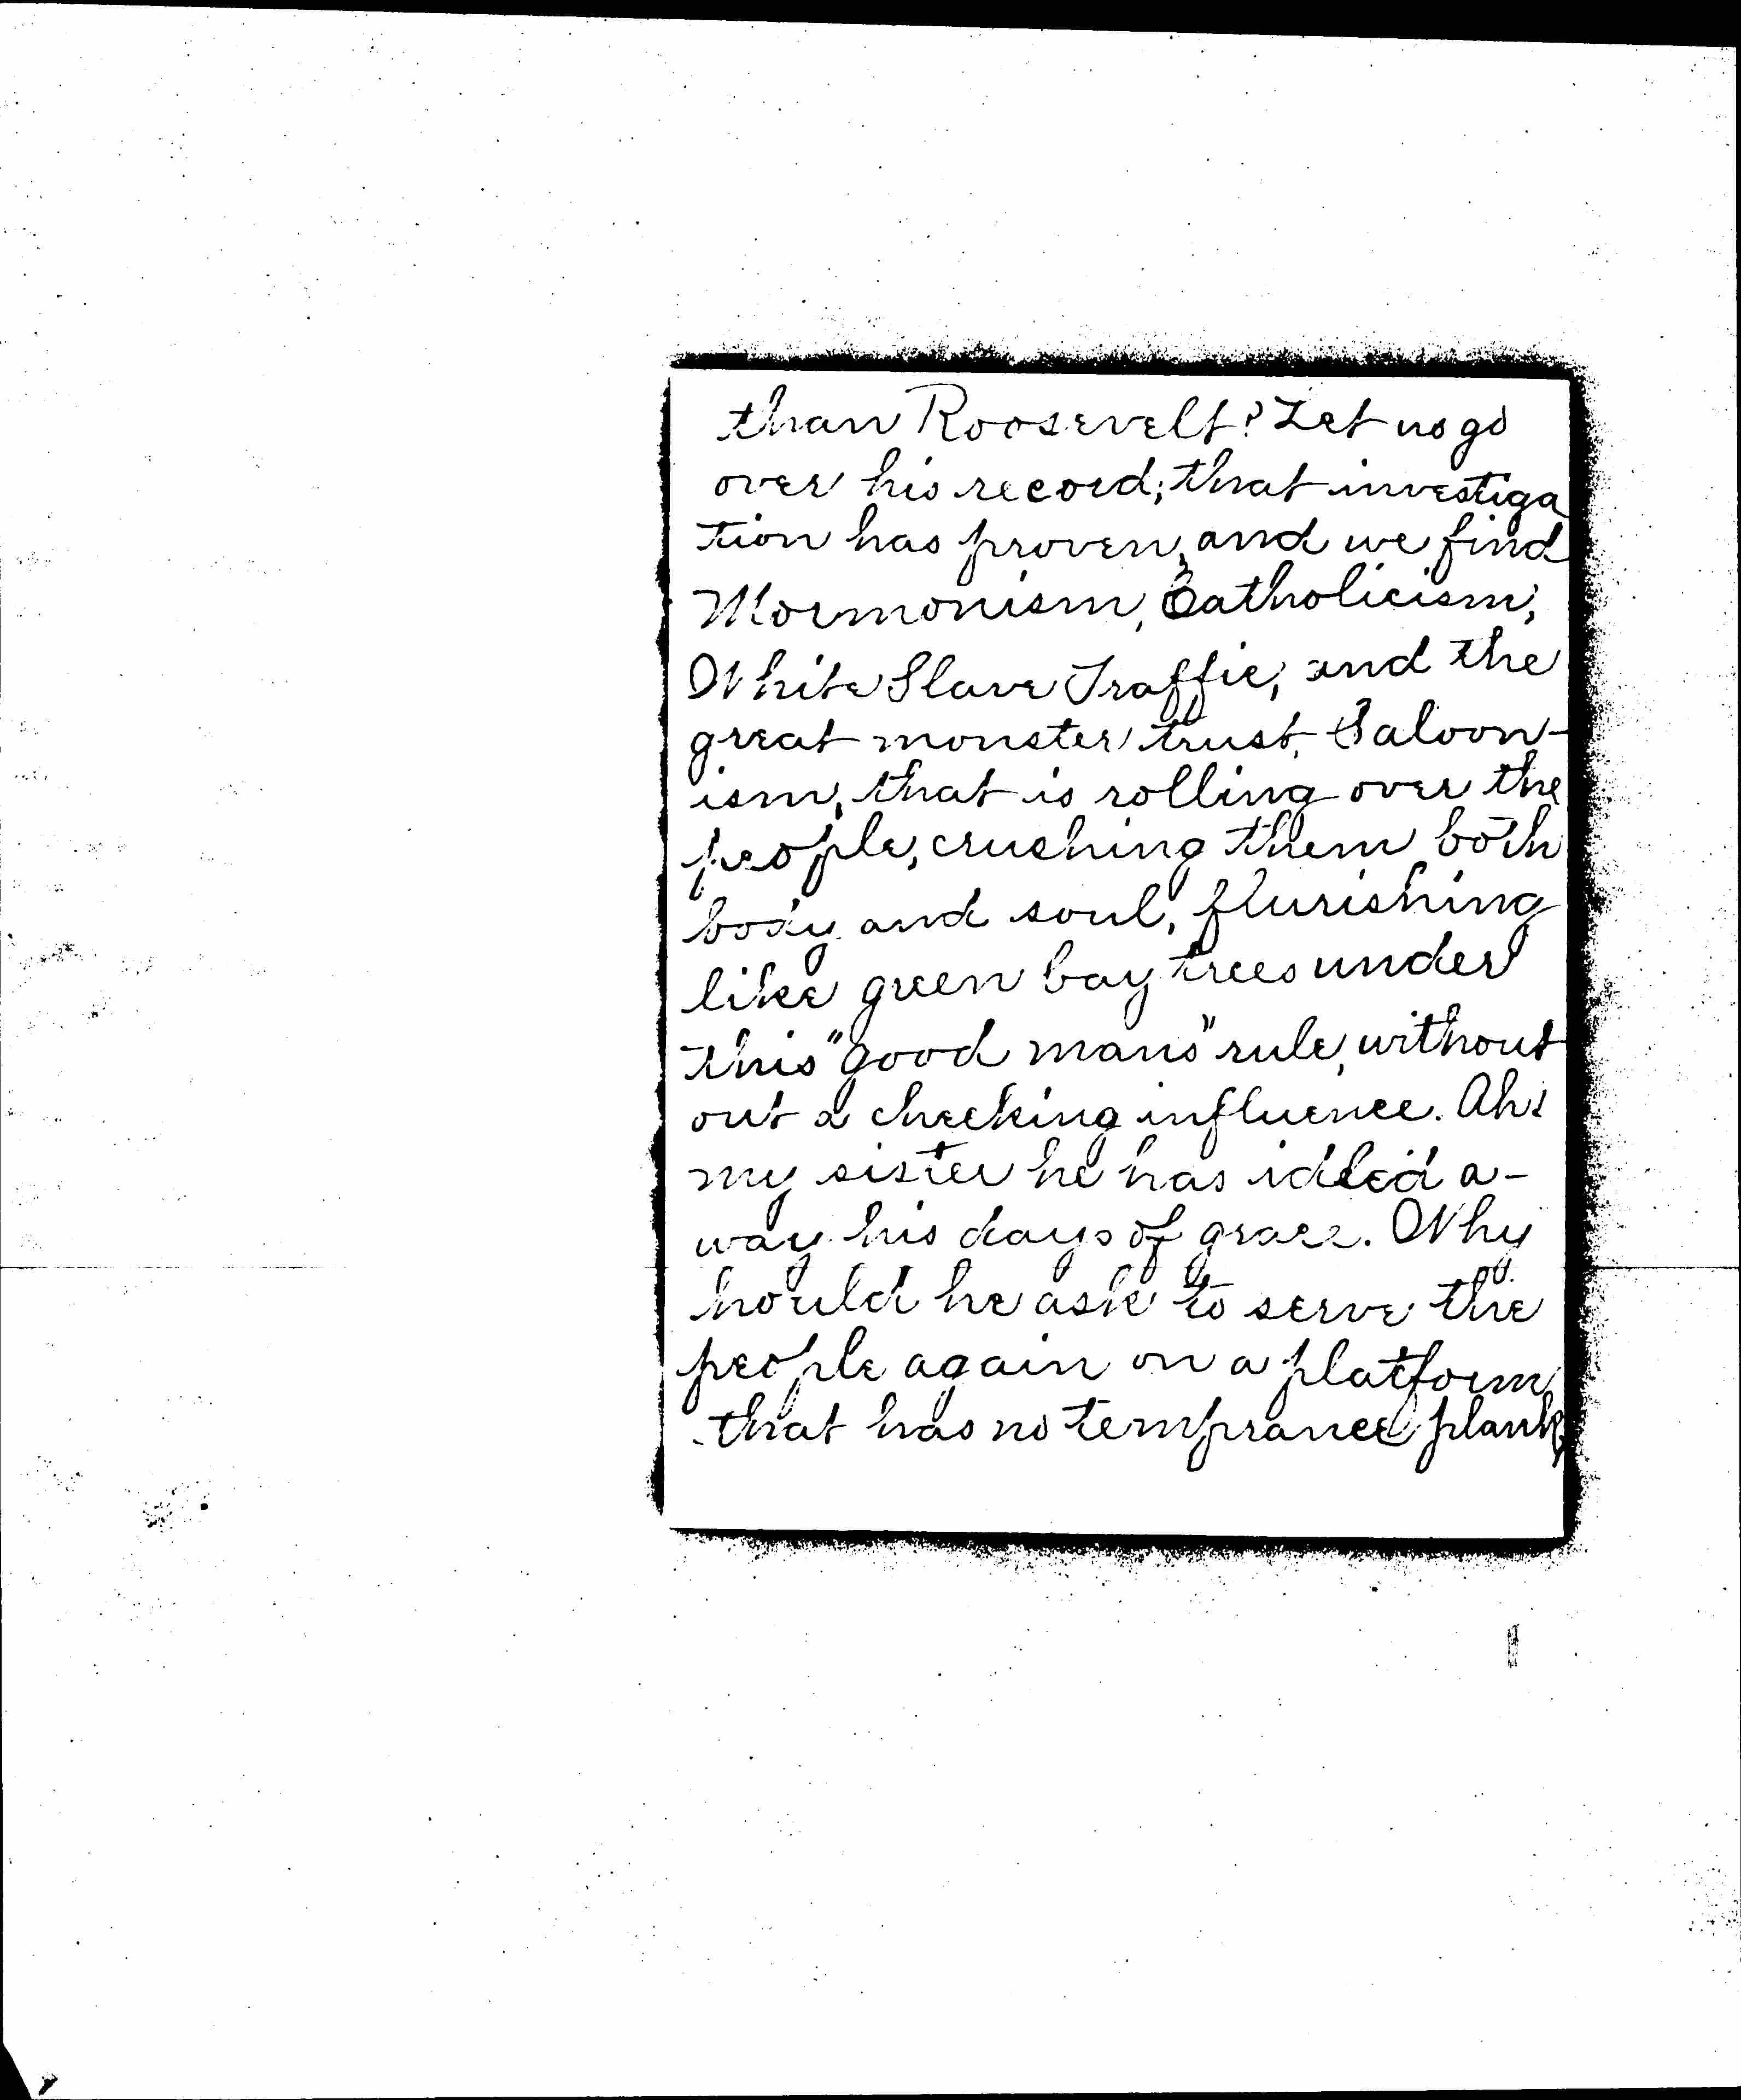 than Roosevelt? Let us go
over his record; that investiga
tion has proven, and we find
Mormonism, Catholicism,
White Slave Traffic, and the
great monster trust, Saloon-
ism, that is rolling over the
people, crushing them both
body and soul, flurishing
like green bay trees under
this "good mans" rule, without
out a checking influence. Ah!
my sister he has idled a-
way his days of grace. Why
hould he ask to serve the
people again on a platform
that has no temprance plank,